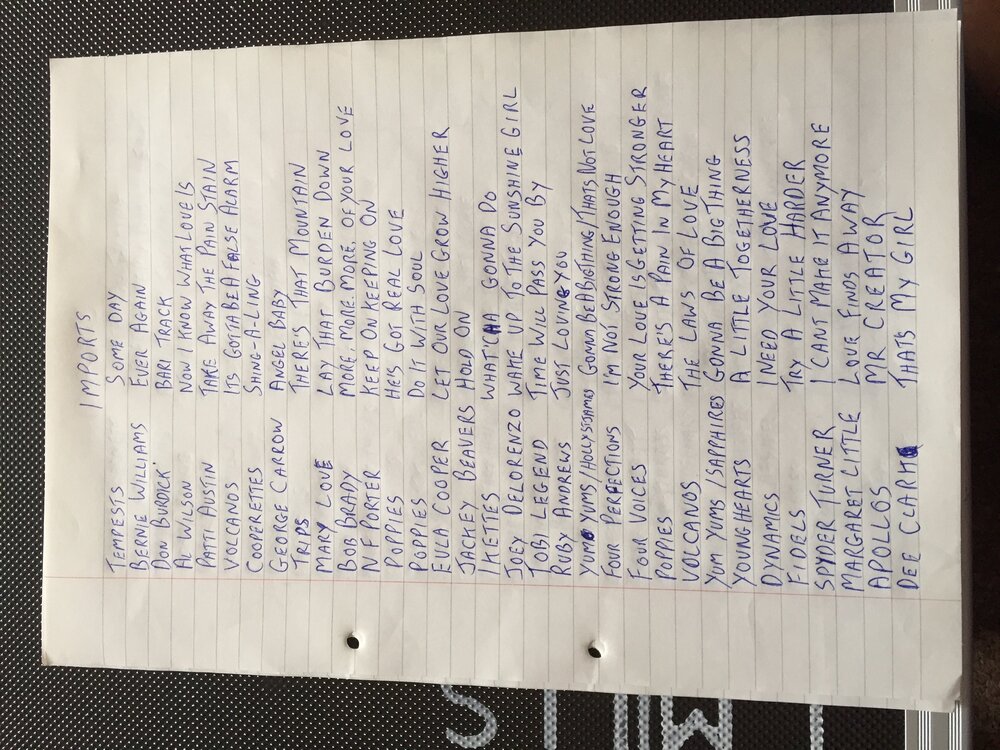 IMPORTS
TEMPESTS SOME DAY
BERNIE WILLIAMS EVER AGAIN
DON BURDICK BARI TRACK
AL WILSON NOW I KNOW WHAT LOVE IS
PATTI AUSTIN TAKE AWAY THE PAIN STAIN
VOLCANOS ITS GOTTA BE A FALSE ALARM
COOPERETTES SHING-A-LING
GEORGE CARROW ANGEL BABY
TRIPS THERE'S THAT MOUNTAIN
MARY LOVE LAY THAT BURDEN DOWN
BOB BRADY MORE MORE MORE, OF YOUR LOVE
N F PORTER KEEP ON KEEPING ON
POPPIES HE'S GOT REAL LOVE
POPPIES DO IT WITH SOUL
EULA COOPER LET OUR LOVE GROW HIGHER
JACKEY BEAVERS HOLD ON
IKETTES WHATCHA GONNA DO
JOEY DELORENZO WAKE UP TO THE SUNSHINE GIRL
TOBI LEGEND TIME WILL PASS YOU BY
RUBY ANDREWS JUST LOVING YOU
YUM YUMS/HOLLY ST JAMES GONNA BE A BIG THING/THATS NOT LOVE
FOUR PERFECTIONS I'M NOT STRONG ENOUGH
FOUR VOICES YOUR LOVE IS GETTING STRONGER
POPPIES THERES A PAIN IN MY HEART
VOLCANOS THE LAWS OF LOVE
YUM YUMS/SAPPHIRES GONNA BE A BIG THING
YOUNGHEARTS A LITTLE TOGETHERNESS
DYNAMICS I NEED YOUR LOVE
FIDELS TRY A LITTLE HARDER
SPYDER TURNER I CANT MAKE IT ANYMORE
MARGARET LITTLE LOVE FINDS A WAY
APOLLOS MR CREATOR
DEE CLARK THATS MY GIRL